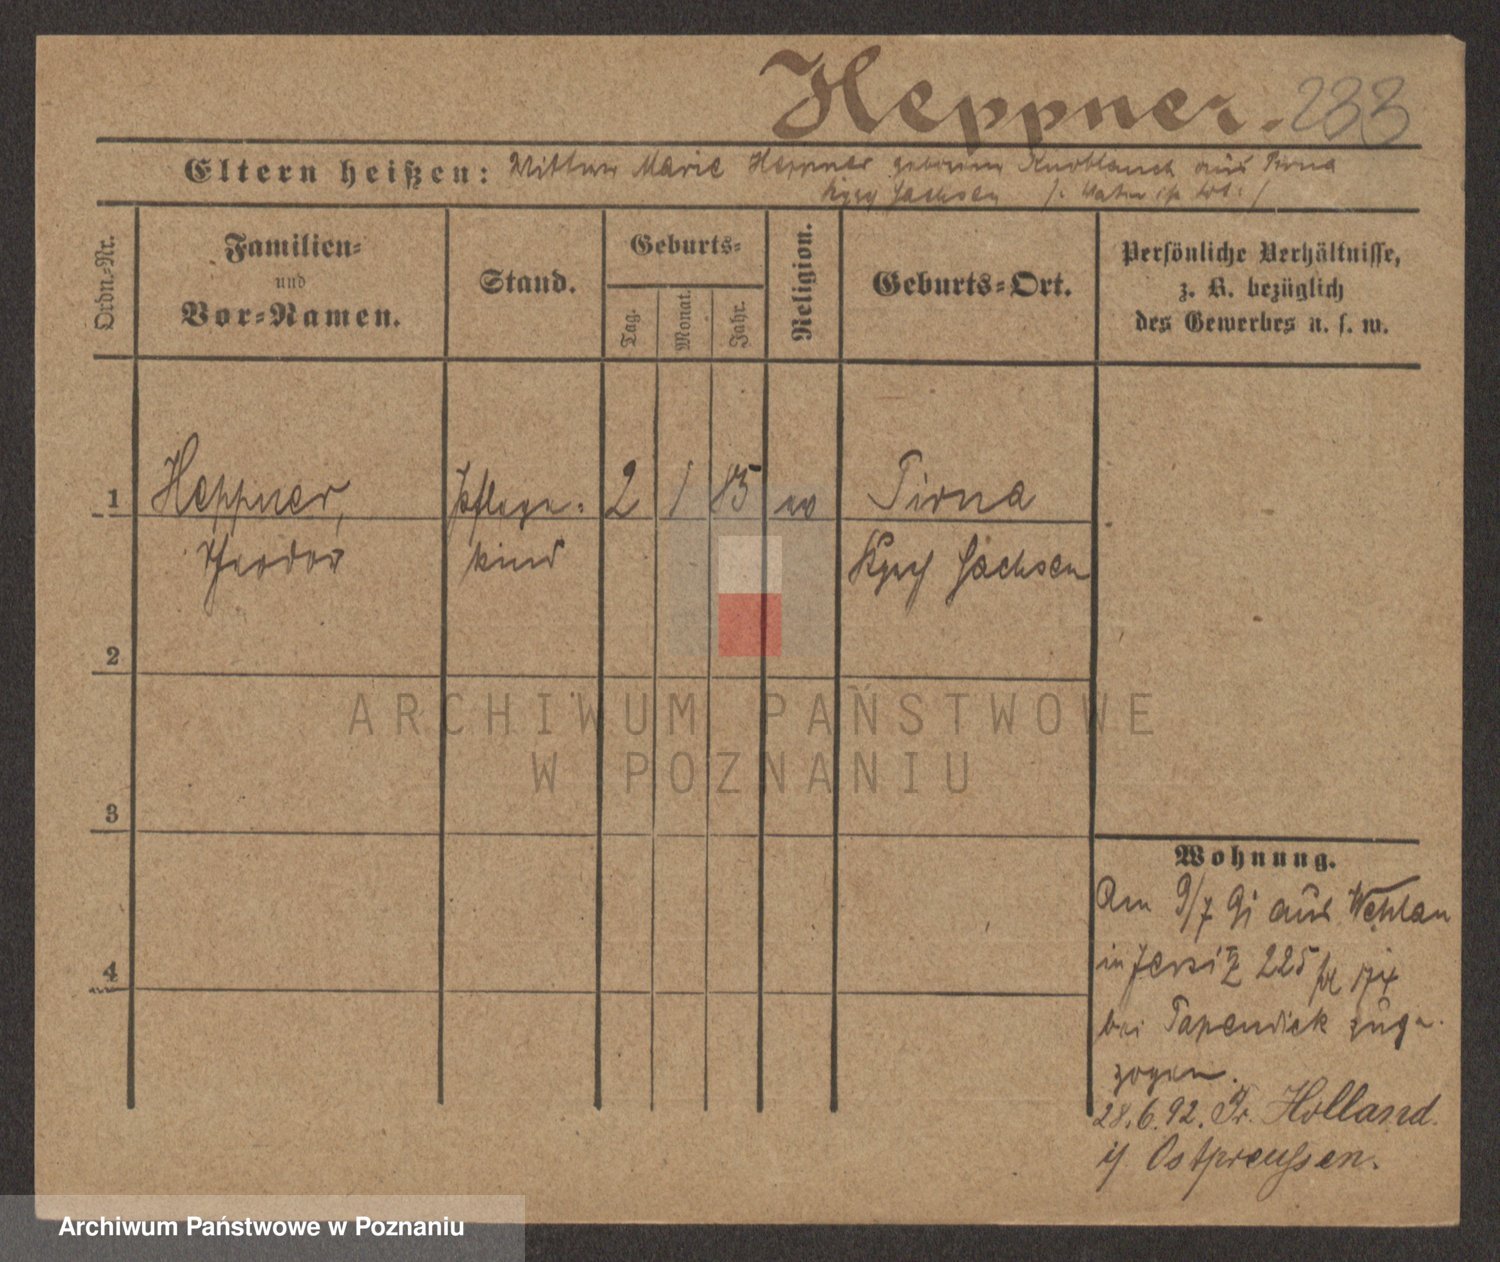 Heppner. 233
Eltern heißen: Wittwe Marie Heppner geborene Knoblauch aus Pirna
Kgrch Sachsen /: Vater ist tot: /
Ordn.-Nr.
Familien-
und
Vor-Namen.
Stand.
Geburts-
Tag.
Monat.
Jahr.
Religion.
Geburts-Ort.
Persönliche Verhältnisse,
z. B. bezüglich
des Gewerbes u. s. w.
1 Heppner, Pflege- 2 1 85 ev Pirna
Theodor kind Kgrch Sachsen
2
3
4
Wohnung.
Am 9/7 91 aus Wehlau
in Jersitz 225
bei Papendick zuge-
zogen.
28.6.92. Pr. Holland
i/ Ostpreussen.
ARCHIWUM PAŃSTWOWE
W POZNANIU
Archiwum Państwowe w Poznaniu